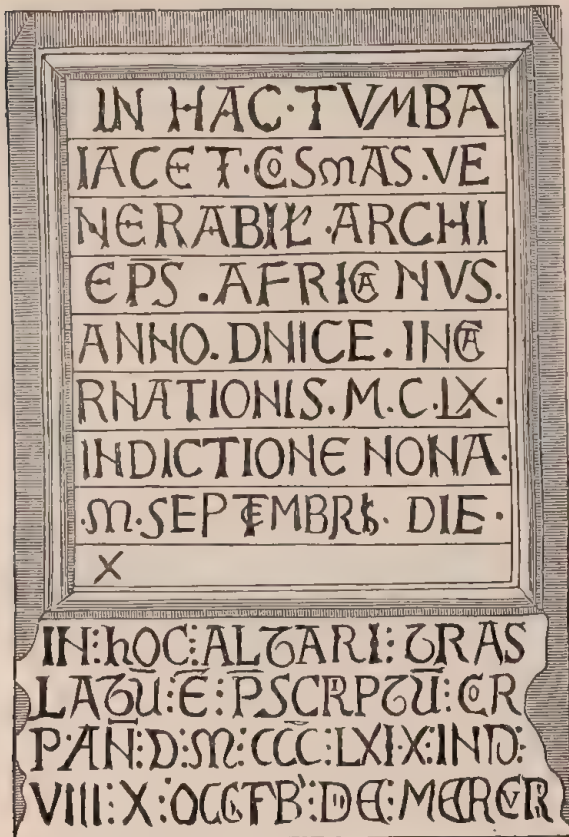 IN HAC·TVMBA
IACET·COSMAS·VE
NERABIŁ·ARCHI
EP̅S̅.AFRICANVS.
ANNO.DNICE.INCA
RNATIONIS.M.C.LX·
INDICTIONE NONA·
·M·SEPTEMBRIS· DIE·
X
IN:hOC:ALTARI:TRAS
LATU̅:E̅:P̅SCRIPTU̅:COR
P·AN̅:D:M:CCC:LXIX:IND:
VIII:X:OCTB':DIE:MERCUR